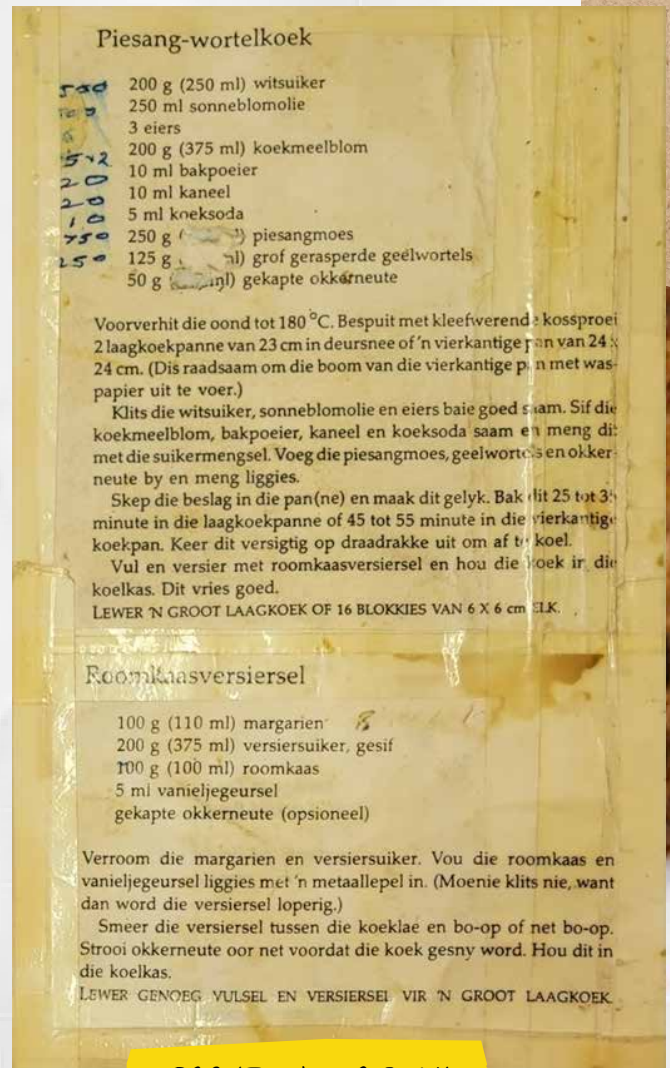 Piesang-wortelkoek
500 200 g (250 ml) witsuiker
250 ml sonneblomolie
6 3 eiers
200 g (375 ml) koekmeelblom
20 10 ml bakpoeier
20 10 ml kaneel
10 5 ml koeksoda
750 250 g ( ) piesangmoes
250 125 g ml) grof gerasperde geelwortels
50 g ( ml) gekapte okkerneute
Voorverhit die oond tot 180 °C. Bespuit met kleefwerende kossproei
2 laagkoekpanne van 23 cm in deursnee of 'n vierkantige pan van 24 x
24 cm. (Dis raadsaam om die boom van die vierkantige pan met was-
papier uit te voer.)
Klits die witsuiker, sonneblomolie en eiers baie goed saam. Sif die
koekmeelblom, bakpoeier, kaneel en koeksoda saam en meng dit
met die suikermengsel. Voeg die piesangmoes, geelwortels en okker-
neute by en meng liggies.
Skep die beslag in die pan(ne) en maak dit gelyk. Bak dit 25 tot 35
minute in die laagkoekpanne of 45 tot 55 minute in die vierkantige
koekpan. Keer dit versigtig op draadrakke uit om af te koel.
Vul en versier met roomkaasversiersel en hou die koek in die
koelkas. Dit vries goed.
LEWER 'N GROOT LAAGKOEK OF 16 BLOKKIES VAN 6 X 6 cm ELK.
Roomkaasversiersel
100 g (110 ml) margarien
200 g (375 ml) versiersuiker, gesif
100 g (100 ml) roomkaas
5 ml vanieljegeursel
gekapte okkerneute (opsioneel)
Verroom die margarien en versiersuiker. Vou die roomkaas en
vanieljegeursel liggies met 'n metaallepel in. (Moenie klits nie, want
dan word die versiersel loperig.)
Smeer die versiersel tussen die koeklae en bo-op of net bo-op.
Strooi okkerneute oor net voordat die koek gesny word. Hou dit in
die koelkas.
LEWER GENOEG VULSEL EN VERSIERSEL VIR 'N GROOT LAAGKOEK.